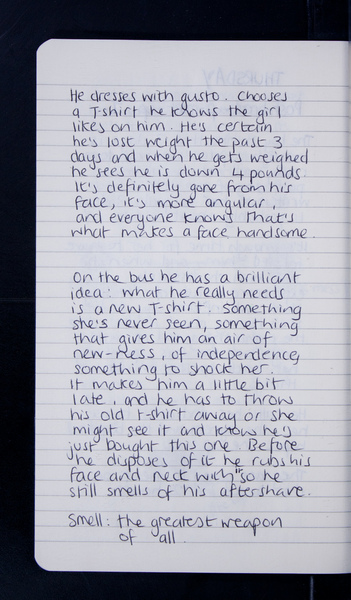 He dresses with gusto. Chooses
a T-shirt he knows the girl
likes on him. He's certain
he's lost weight the past 3
days and when he gets weighed
he sees he is down 4 pounds.
It's definitely gone from his
face, it's more angular,
and everyone knows that's
what makes a face handsome.
On the bus he has a brilliant
idea: what he really needs
is a new T-shirt. Something
she's never seen, something
that gives him an air of
new-ness, of independence,
something to shock her.
It makes him a little bit
late, and he has to throw
his old t-shirt away or she
might see it and know he's
just bought this one. Before
he disposes of it he rubs his
face and neck with it so he
still smells of his aftershave.
Smell: the greatest weapon
of all.